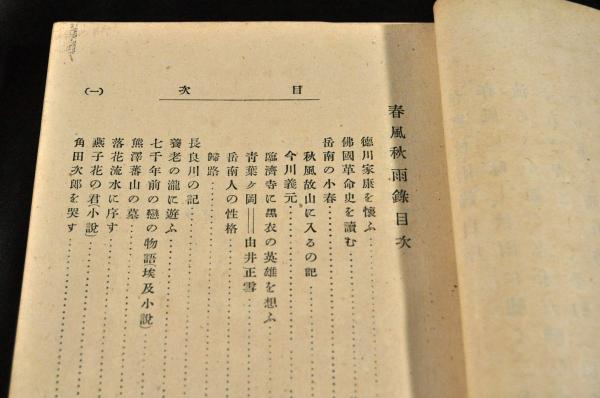 春風秋雨錄目次
德川家康を懷ふ
佛國革命史を讀む
岳南の小春
秋風故山に入るの記
今川義元
臨濟寺に黑衣の英雄を想ふ
靑葉ヶ岡＝＝由井正雪
岳南人の性格
歸路
長良川の記
養老の瀧に遊ふ
七千年前の戀の物語(埃及小說)
熊澤蕃山の墓
落花流水に序す
燕子花の君(小說)
角田次郎を哭す
目次
(一)